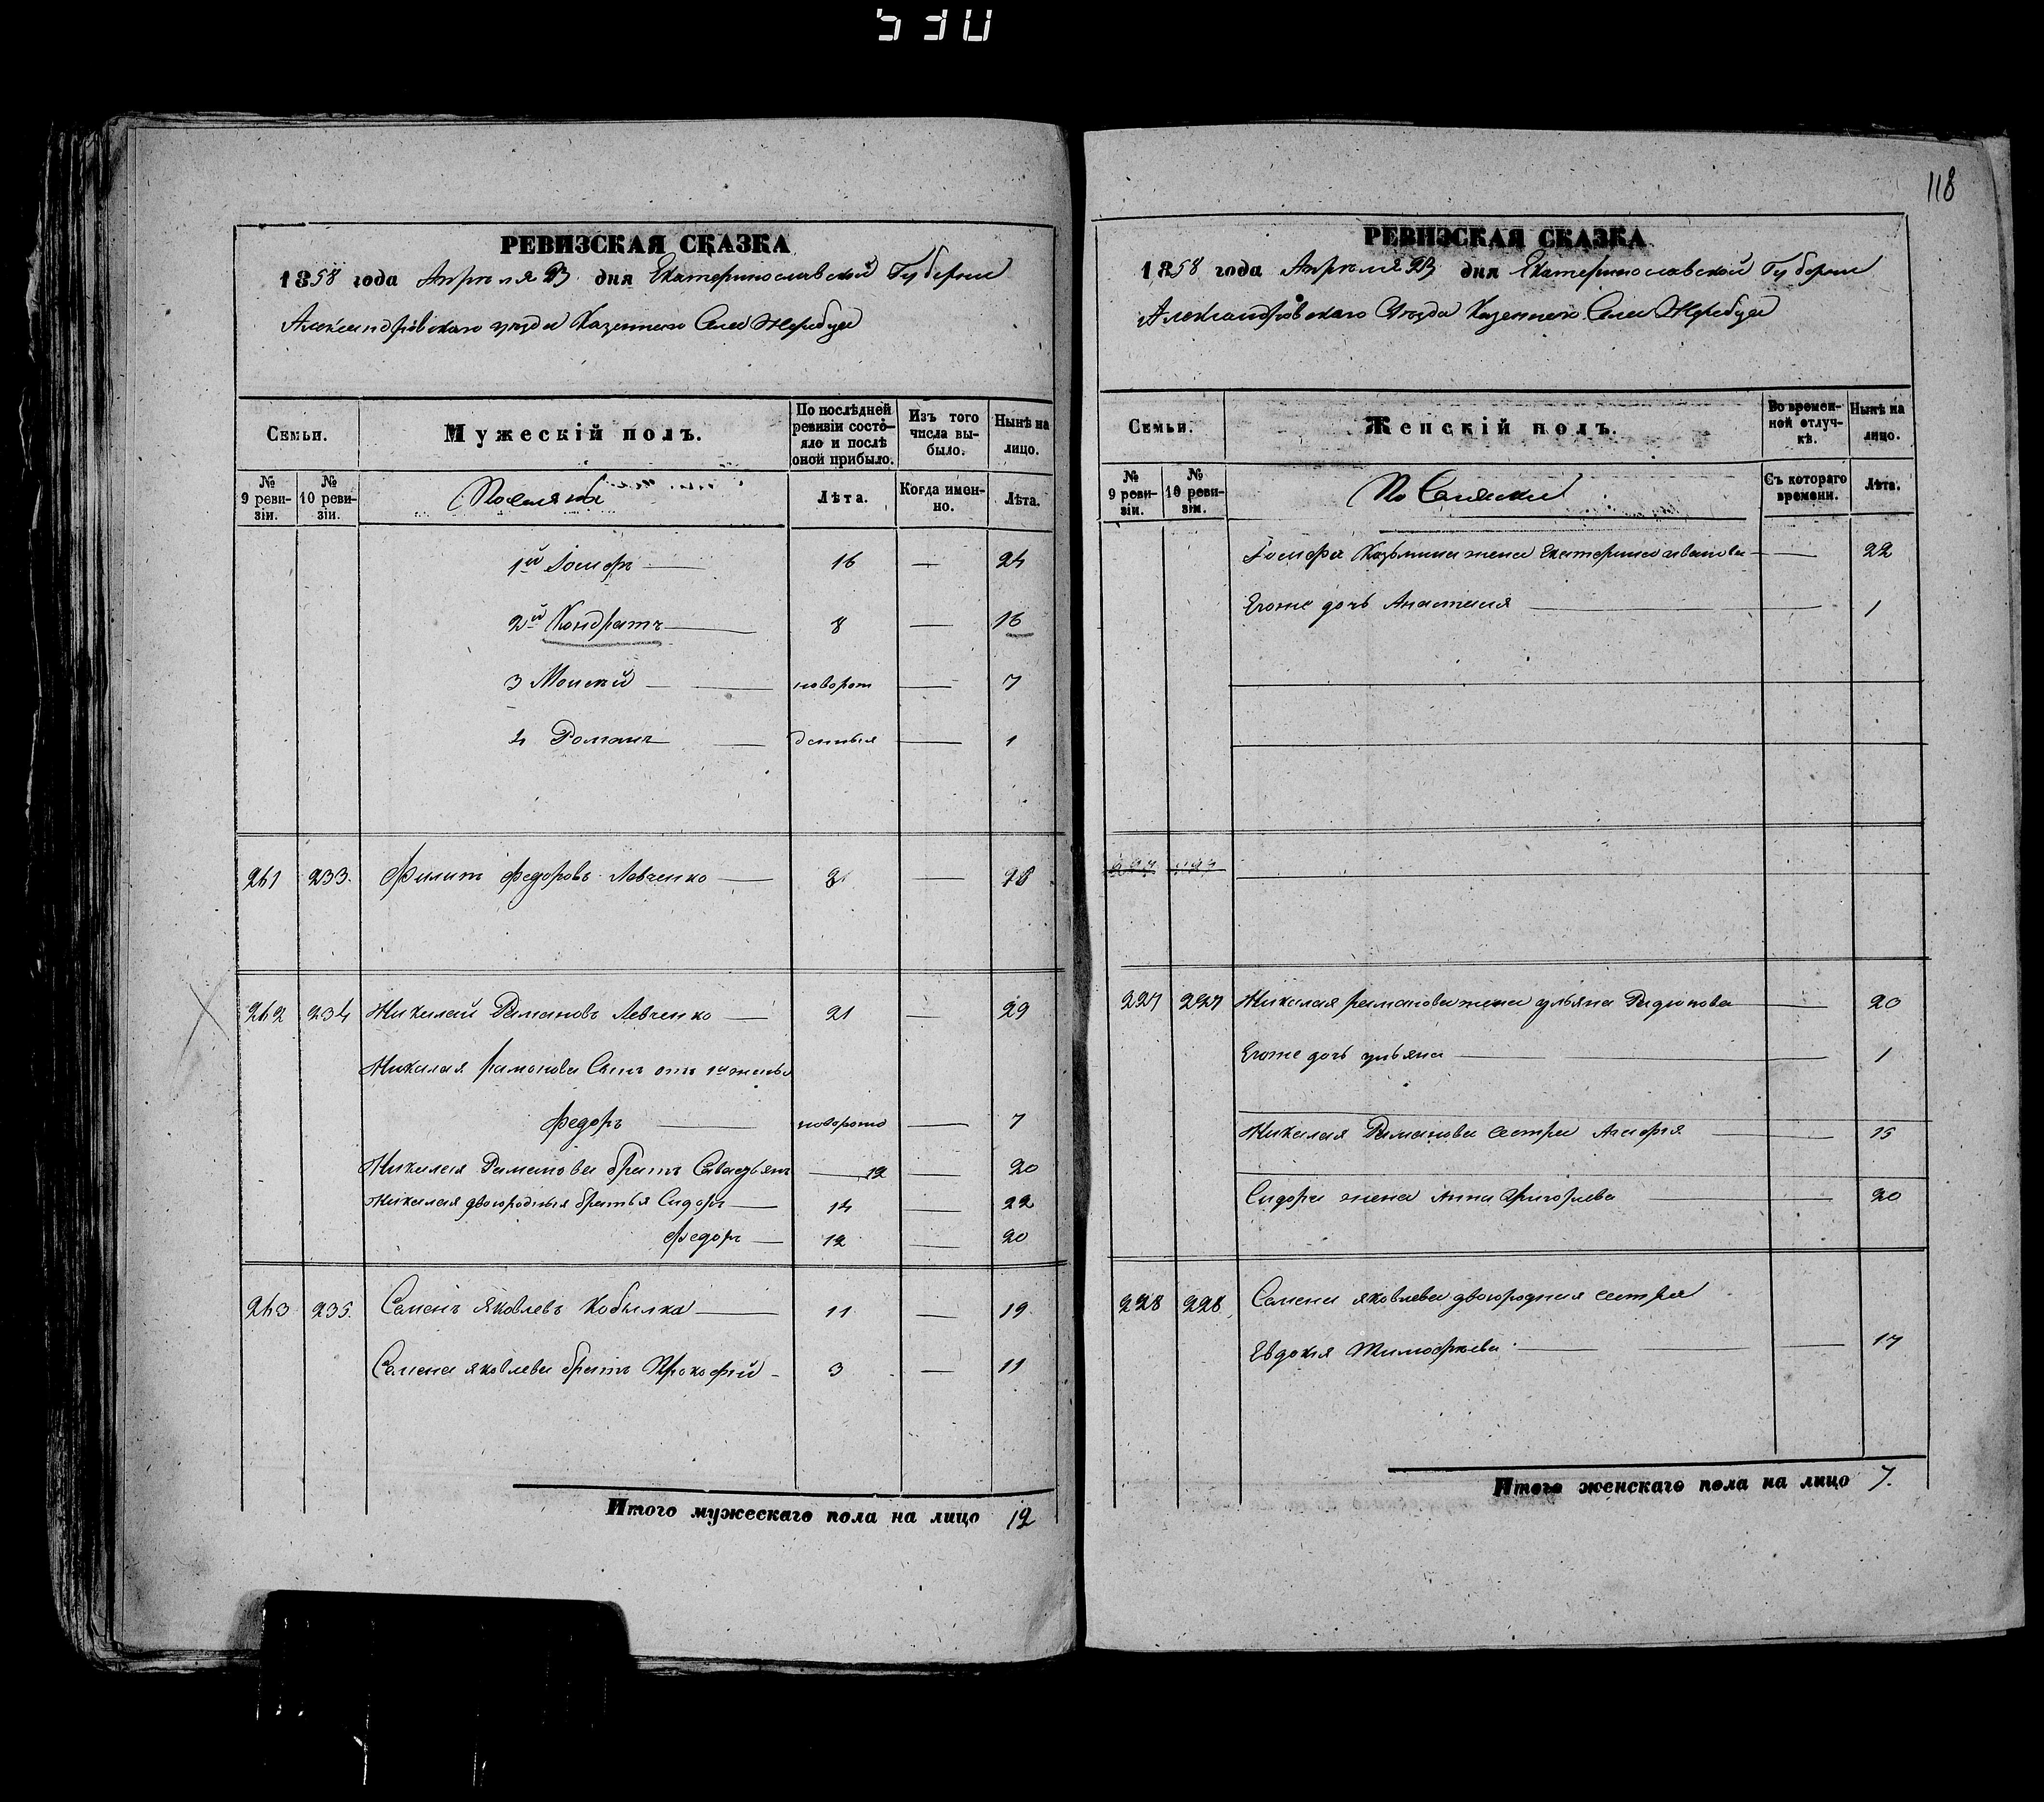 530
118
РЕВИЗСКАЯ СКАЗКА
1858 года Апреля 23 дня Екатеринославской Губернии
Александровскаго уезда Казеннаго Села Жеребца
Семьи.
Мужескій полъ.
По послѣдней ревизіи состояло и послѣ оной прибыло.
Изъ того числа выбыло.
Нынѣ на лицо.
№ 9 ревизіи.
№ 10 ревизіи.
Поселяне
Лѣта.
Когда именно.
Лѣта.
1й Іосифъ — 16 — 24
2й Кондратъ — 8 — 16
3 Моисей — новорож — 7
4 Романъ — 1
261 233. Филипъ Федоровъ Левченко — —
262 234 Николай Рамановъ Левченко — 21 — 29
Николая Раманова Сынъ отъ 1й жены
Федоръ — новорожд — 7
Николая Раманова братъ — 12 — 20
Николая двоюродныя братья Сидоръ — 14 — 22
Федоръ — 12 — 20
263 235. Семенъ Яковлевъ Кобылка — 11 — 19
Семена Яковлева братъ Прокофій — 3 — 11
Итого мужескаго пола на лицо 12
РЕВИЗСКАЯ СКАЗКА
1858 года Апреля 23 дня Екатеринославской Губернии
Александровскаго Уезда Казеннаго Села Жеребца
Семьи.
Женскій полъ.
Во временной отлучкѣ.
Нынѣ на лицо.
№ 9 ревизіи.
№ 10 ревизіи.
Поселянки
Съ котораго времени.
Лѣта.
Іосифа Козьмина жена Екатерина Иванова — — 22
Егоже дочь Анастасия — — 1
227 227 Николая Раманова жена Ульяна Радионова — — 20
Егоже дочь Ульяна — — 1
Николая Раманова сестра — — 15
Сидора жена Анна Григорьева — — 20
228 228 Семена Яковлева двоюродная сестра
Евдокия Тимофеева — — 17
Итого женскаго пола на лицо 7.